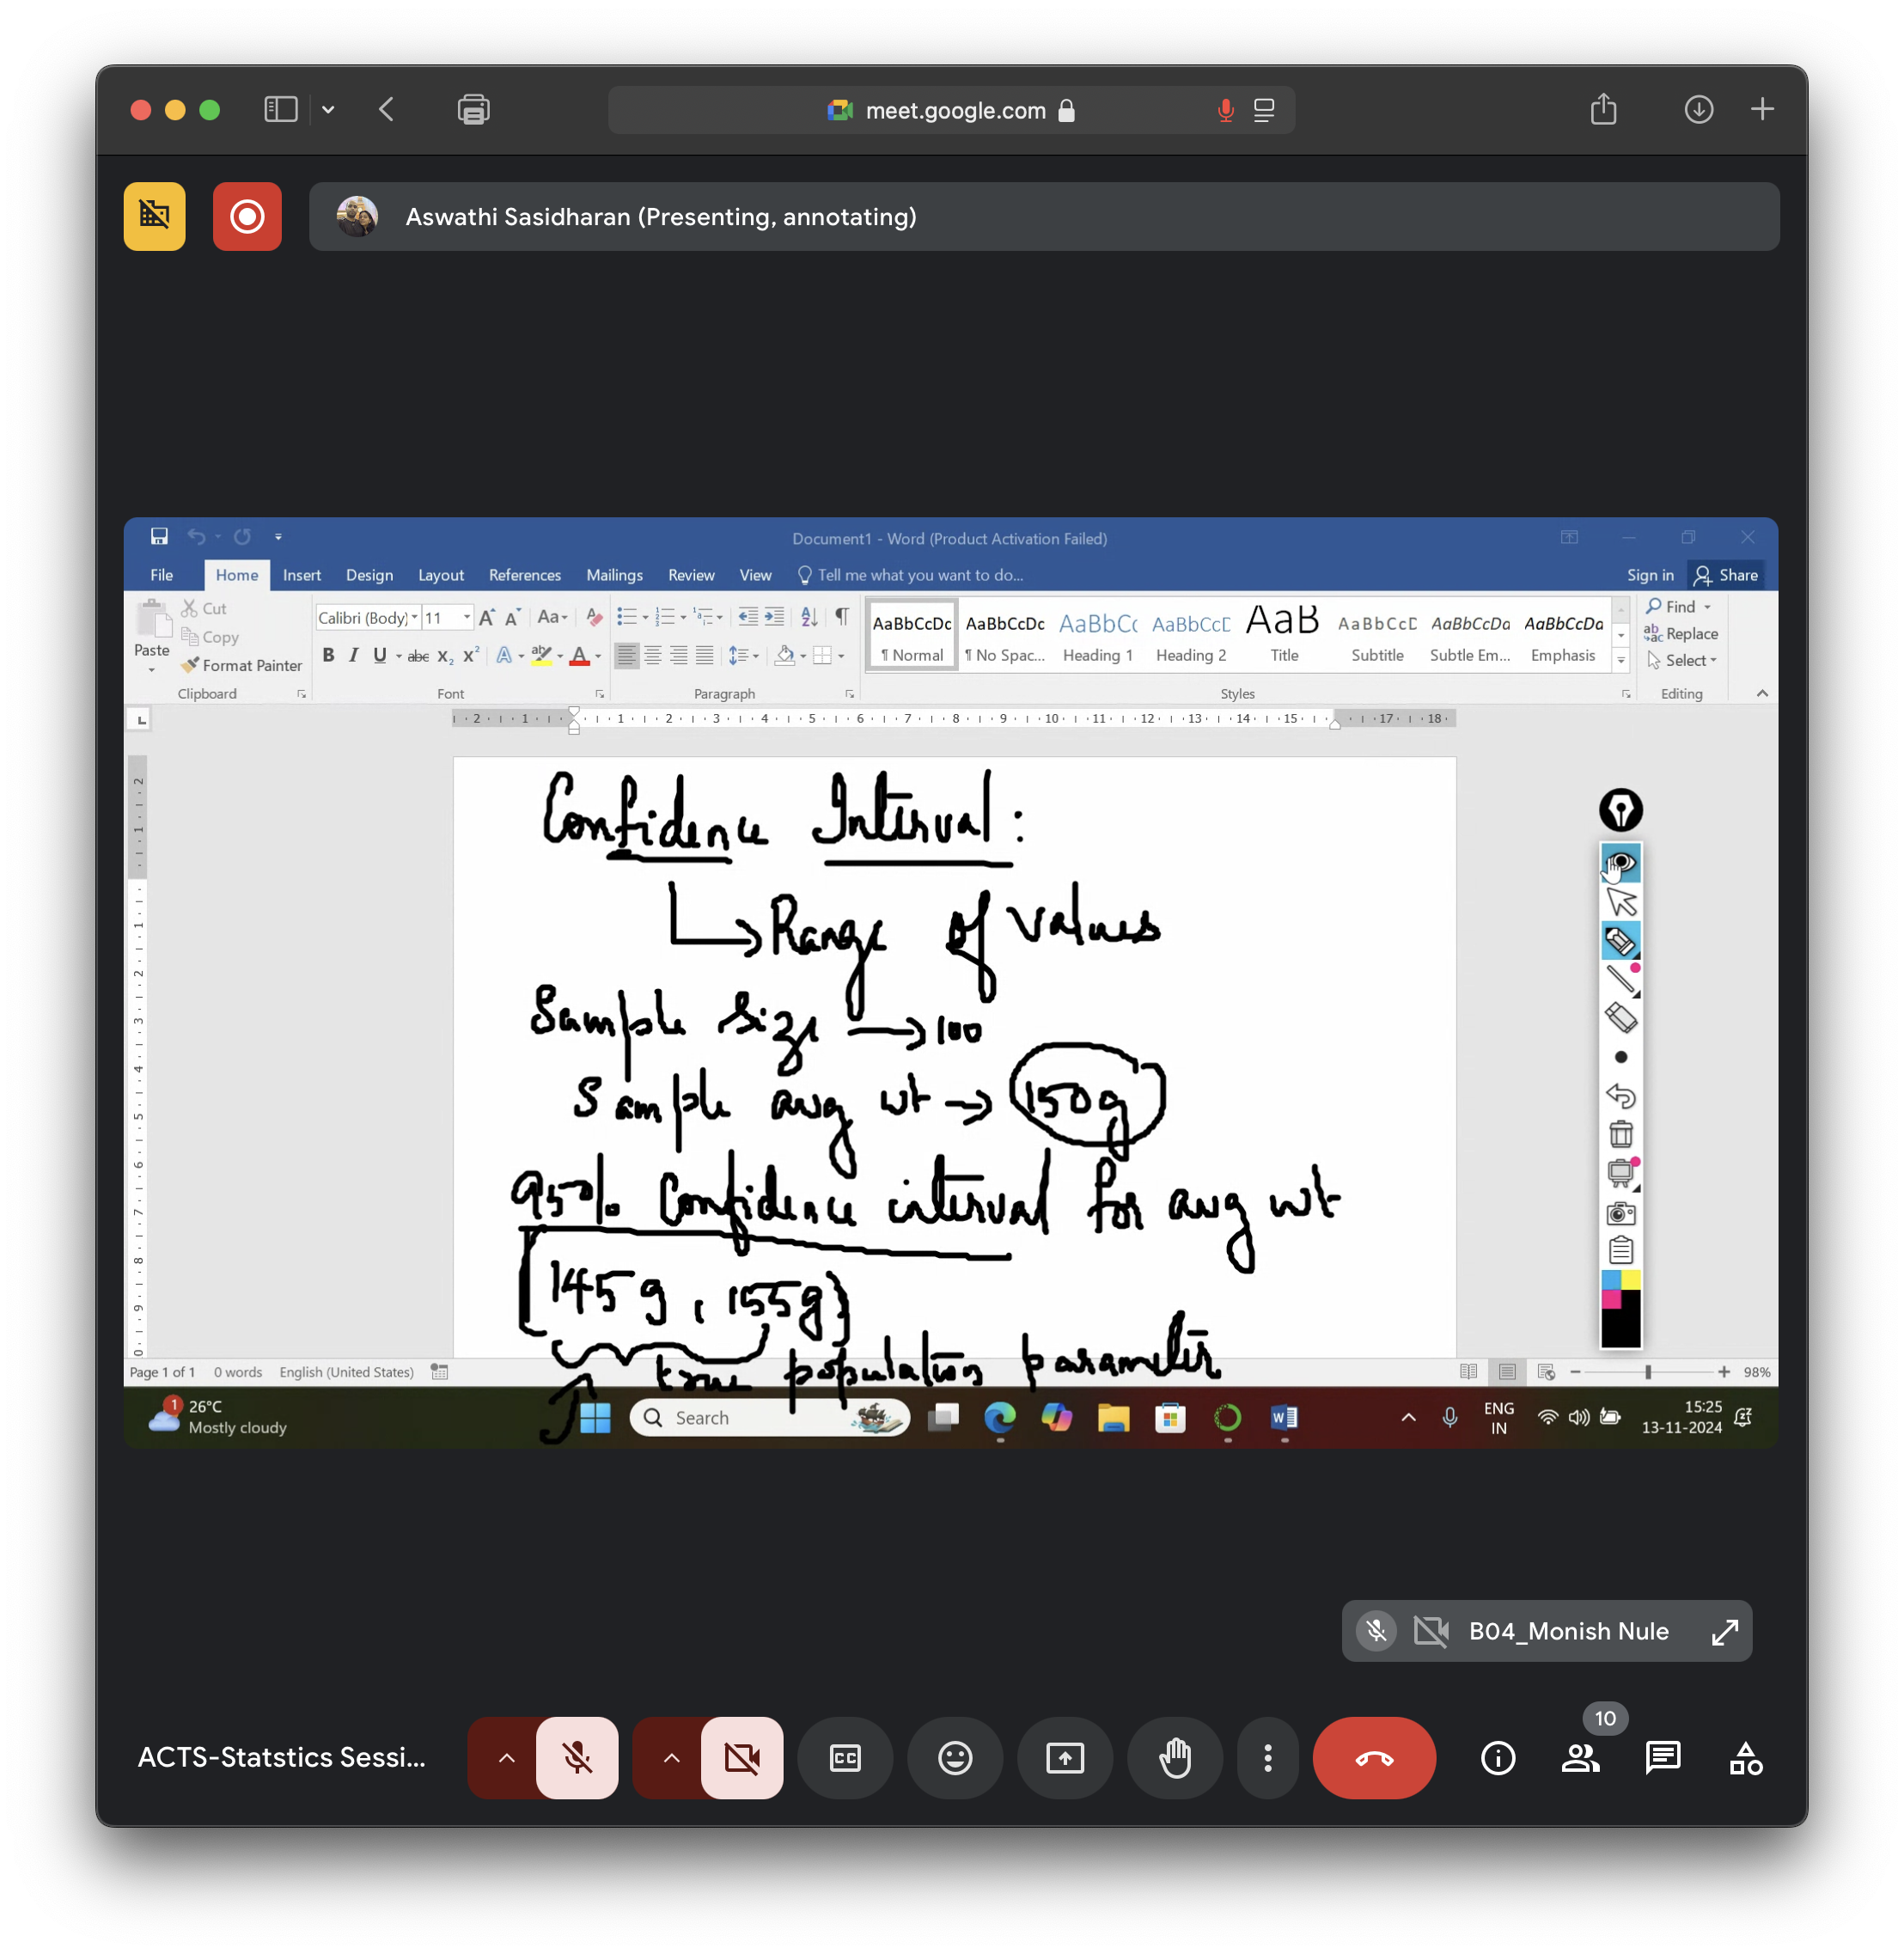 meet.google.com
Aswathi Sasidharan (Presenting, annotating)
Document1 - Word (Product Activation Failed)
File Home Insert Design Layout References Mailings Review View Tell me what you want to do... Sign in Share
Paste
Cut
Copy
Format Painter
Clipboard
Calibri (Body) 11
Font
Paragraph
AaBbCcDc AaBbCcDc AaBbCc AaBbCcD AaB AaBbCcD AaBbCcDa AaBbCcDa
¶ Normal ¶ No Spac... Heading 1 Heading 2 Title Subtitle Subtle Em... Emphasis
Styles
Find
Replace
Select
Editing
2 1 1 2 3 4 5 6 7 8 9 10 11 12 13 14 15 17 18
Confidence Interval:
Range of values
Sample size → 100
Sample avg wt → 150g
95% Confidence interval for avg wt
[145g, 155g]
true population parameter
Page 1 of 1 0 words English (United States) 98%
1 26°C
Mostly cloudy
Search
ENG
IN
15:25
13-11-2024
B04_Monish Nule
10
ACTS-Statstics Sessi...
CC